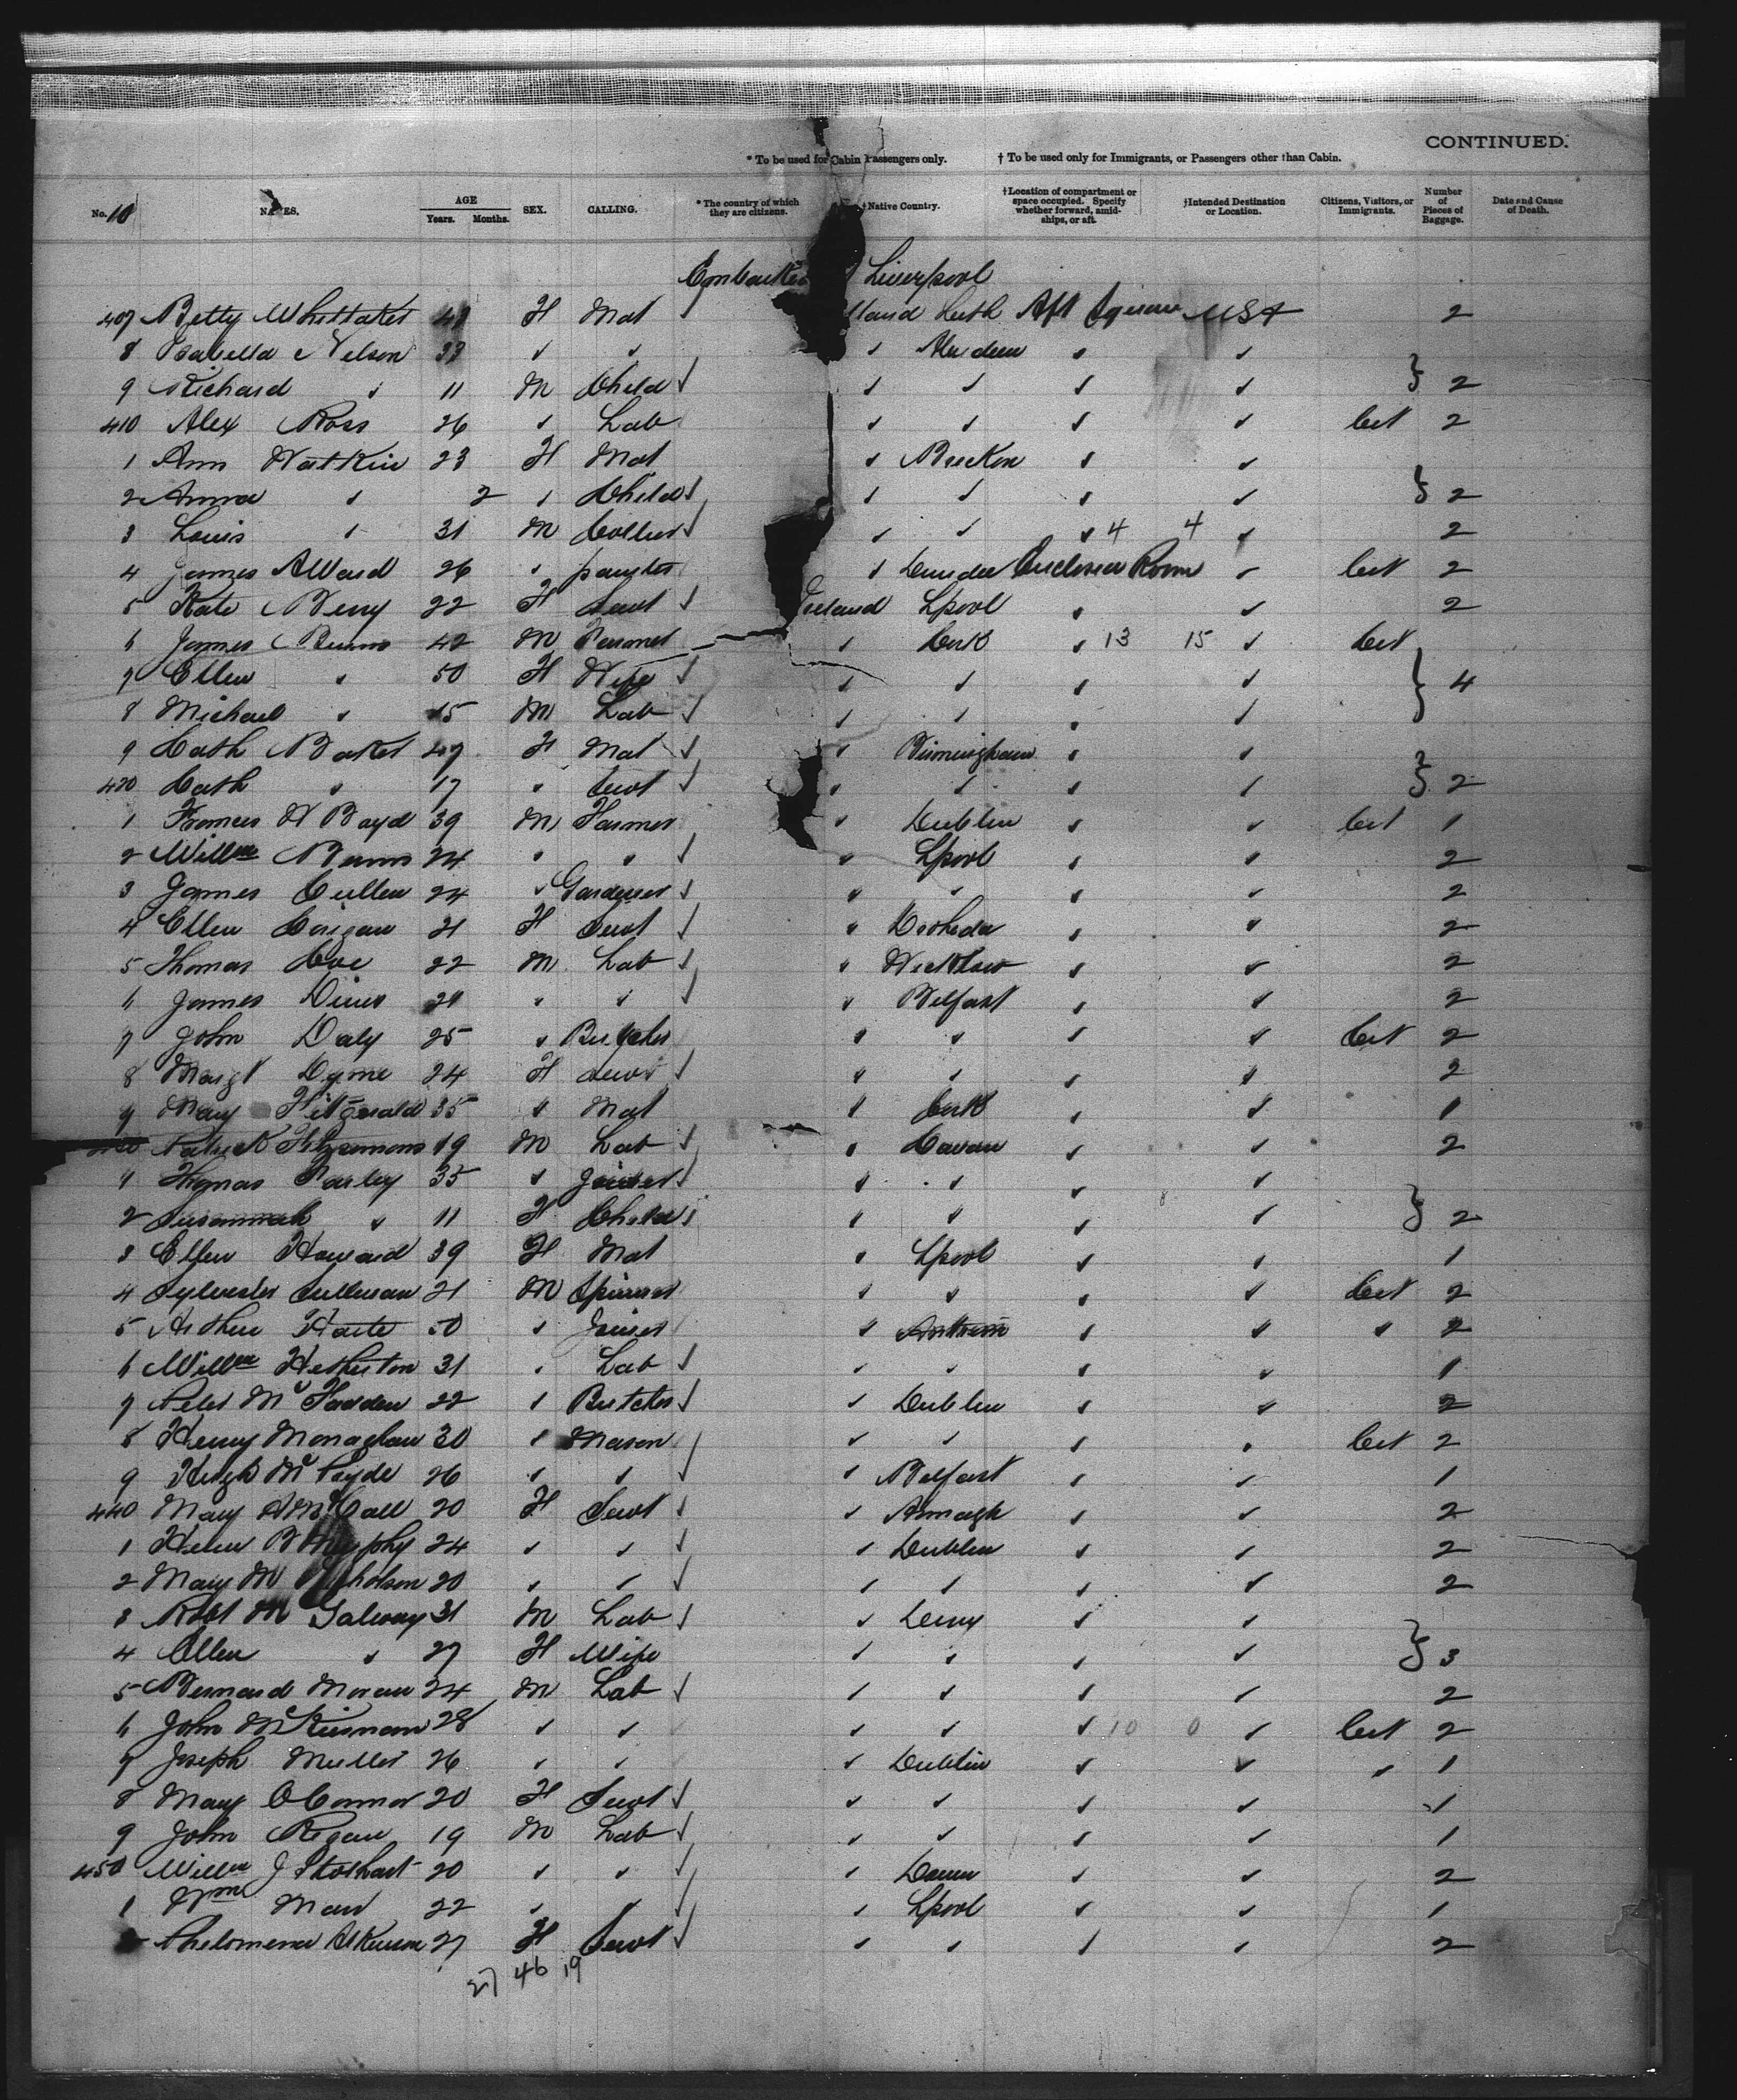 CONTINUED.
* To be used for Cabin Passengers only. † To be used only for Immigrants, or Passengers other than Cabin.
No. 10 NAMES. AGE Years. Months. SEX. CALLING. * The country of which they are citizens. † Native Country. † Location of compartment or space occupied. Specify whether forward, amidships, or aft. † Intended Destination or Location. Citizens, Visitors, or Immigrants. Number of Pieces of Baggage. Date and Cause of Death.
Liverpool
407 Betty Whittaker F Mat Aft USA 2
8 Isabella Nelson 33 " " " Aberdeen " "
9 Richard " 11 M Child " " " " } 2
410 Alex Ross 26 " Lab " " " " Cit 2
1 Ann Watkin 23 F Mat " " "
2 Anna " 2 " Child " " " " } 2
3 Louis " 31 M Collier " " " 4 4 " 2
4 James Allard 26 " painter " Dundee Room " Cit 2
5 Kate Berry 22 F Servt Ireland Lpool " " 2
6 James Burns 42 M " Cork " 13 15 " Cit
7 Ellen " 50 F Wife " " " " } 4
8 Michael " 15 M Lab " " " "
9 Cath Baker 47 F Mat " Birmingham " "
420 Cath " 17 " Servt " " " " } 2
1 Frances W Boyd 39 M Farmer " Dublin " " Cit 1
2 Willm Burns 24 " " " Lpool " " 2
3 James Cullen 24 " Gardener " " " " 2
4 Ellen Corigan 21 F Servt " " " 2
5 Thomas Coe 22 M Lab " Wicklow " " 2
6 James 21 " " " Belfast " " 2
7 John Daly 25 " Butcher " " " " Cit 2
8 Margt 24 F Servt " " " " 2
9 Mary Fitzgerald 35 " Mat " Cork " " 1
Patrick Fitzsimons 19 M Lab " Cavan " " 2
1 Thomas Farley 35 " Joiner " " " "
2 Susannah " 11 F Child " " " " } 2
3 Ellen Howard 39 F Mat " Lpool " " 1
4 Sylvester Sullivan 21 M Spinner " " " " Cit 2
5 Arthur Harte 50 " Joiner " Antrim " " " 2
6 Willm Hetherton 31 " Lab " " " " 1
7 Peter McFadden 22 " Butcher " Dublin " " 2
8 Henry Monaghan 30 " Mason " " " " Cit 2
9 Hugh 26 " " " Belfast " " 1
440 Mary A McCall 20 F Servt " Armagh " " 2
1 Helen B Murphy 24 " " " Dublin " " 2
2 Mary M Nicholson 20 " " " " " " 2
3 Robt M Galway 31 M Lab " Derry " "
4 Ellen " 27 F Wife " " " " } 3
5 Bernard Moran 24 M Lab " " " " 2
6 John McKiernan 28 " " " " " 10 0 " Cit 2
7 Joseph Muller 26 " " " Dublin " " " 1
8 Mary OConnor 20 F Servt " " " " 1
9 John Regan 19 M Lab " " " " 1
450 Willm J Stothart 20 " " " Down " " 2
1 Wm Maw 22 " " " Lpool " " 1
Philomena Atkinson 27 F Servt " " " " 2
27 46 19